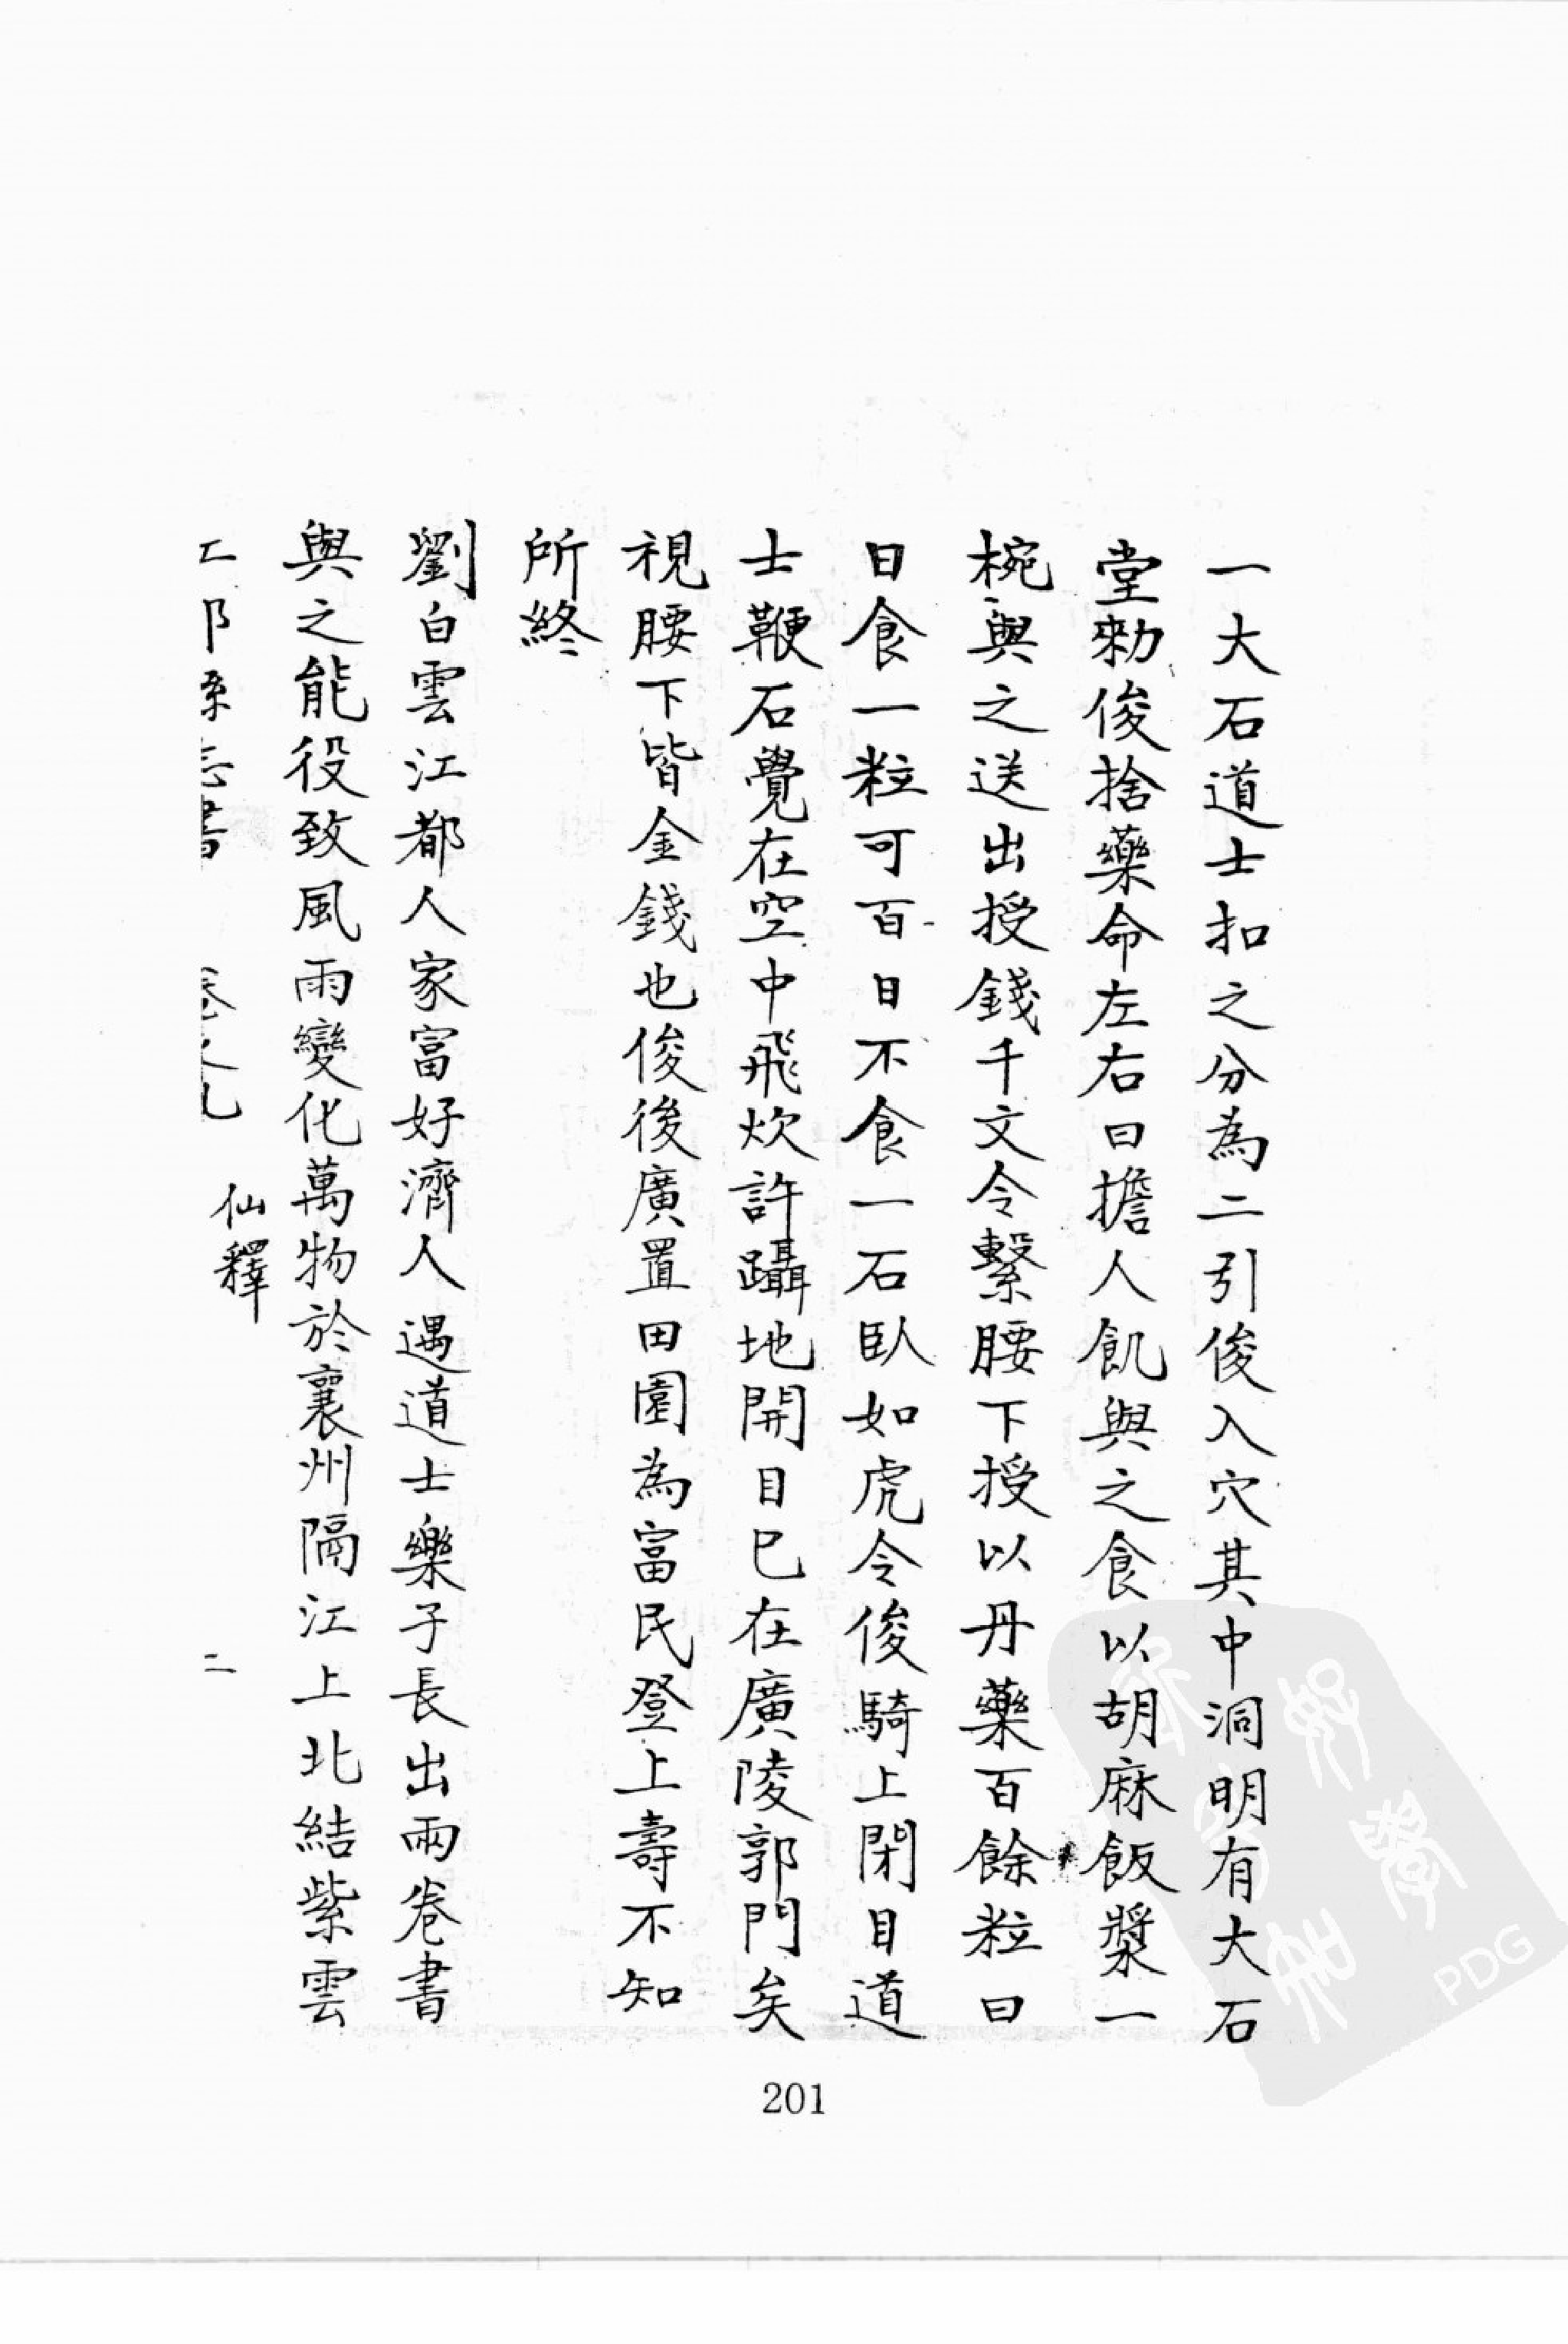 一大石道士扣之分為二引俊入穴其中洞明有大石
堂勑俊捨藥命左右曰擔人飢與之食以胡麻飯漿一
椀與之送出授錢千文令繫腰下授以丹藥百餘粒曰
日食一粒可百日不食一石臥如虎令俊騎上閉目道
士鞭石覺在空中飛炊許躡地開目已在廣陵郭門矣
視腰下皆金錢也俊後廣置田園為富民登上壽不知
所終
劉白雲江都人家富好濟人遇道士樂子長出兩卷書
與之能役致風雨變化萬物於襄州隔江上北結紫雲
志書 卷之九 仙釋 二
201
PDG